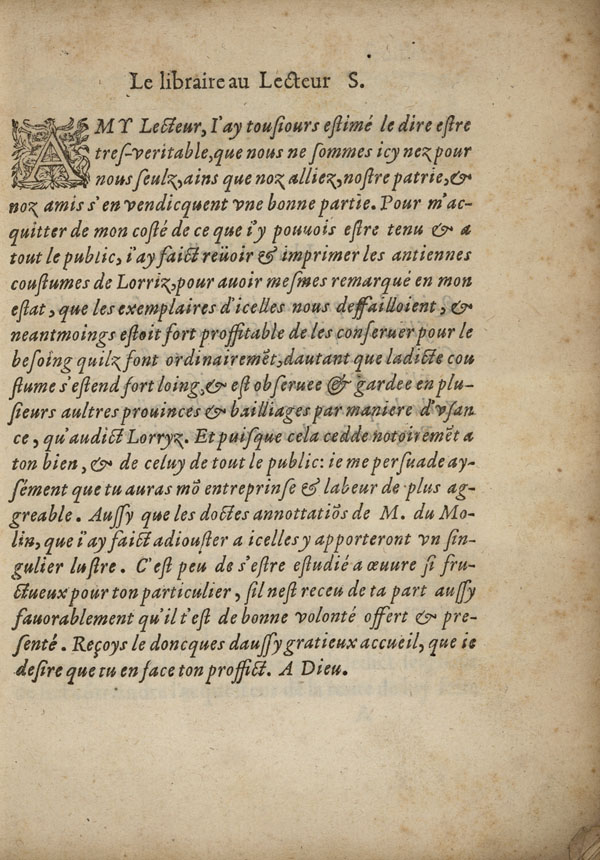 Le libraire au Lecteur S.
AMY Lecteur, I'ay tousiours estimé le dire estre
tres-veritable, que nous ne sommes icy nez pour
nous seulz, ains que noz alliez, nostre patrie, &
noz amis s'en vendicquent vne bonne partie. Pour m'ac-
quitter de mon costé de ce que i'y pouuois estre tenu & a
tout le public, i'ay faict reuoir & imprimer les antiennes
coustumes de Lorriz, pour auoir mesmes remarqué en mon
estat, que les exemplaires d'icelles nous deffailloient, &
neantmoings estoit fort proffitable de les conseruer pour le
besoing quilz font ordinairemēt, dautant que ladicte cou
stume s'estend fort loing, & est obseruee & gardee en plu-
sieurs aultres prouinces & bailliages par maniere d'vsan
ce, qu'audict Lorryz. Et puisque cela cedde notoiremēt a
ton bien, & de celuy de tout le public: ie me persuade ay-
sément que tu auras mō entreprinse & labeur de plus ag-
greable. Aussy que les doctes annottatiōs de M. du Mo-
lin, que i'ay faict adiouster a icelles y apporteront vn sin-
gulier lustre. C'est peu de s'estre estudié a œuure si fru-
ctueux pour ton particulier, sil nest receu de ta part aussy
fauorablement qu'il t'est de bonne volonté offert & pre-
senté. Reçoys le doncques daussy gratieux accueil, que ie
desire que tu en face ton proffict. A Dieu.